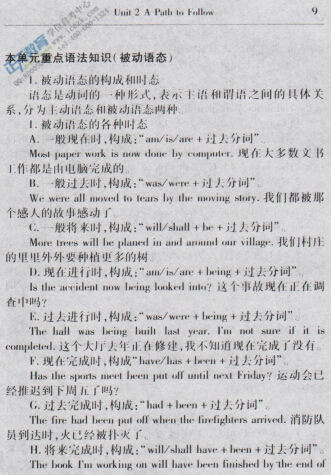 Unit 2 A Path to Follow 9
本单元重点语法知识(被动语态)
1. 被动语态的构成和时态
语态是动词的一种形式,表示主语和谓语之间的具体关
系,分为主动语态和被动语态两种。
1. 被动语态的各种时态
A. 一般现在时,构成:“am/is/are + 过去分词”。
Most paper work is now done by computer. 现在大多数文书
工作都是由电脑完成的。
B. 一般过去时,构成:“was/were + 过去分词”。
We were all moved to tears by the moving story. 我们都被那
个感人的故事感动了。
C. 一般将来时,构成:“will/shall + be + 过去分词”。
More trees will be planed in and around our village. 我们村庄
的里里外外要种植更多的树。
D. 现在进行时,构成:“am/is/are + being + 过去分词”。
Is the accident now being looked into? 这个事故现在正在调
查中吗?
E. 过去进行时,构成:“was/were + being + 过去分词”。
The hall was being built last year. I'm not sure if it is
completed. 这个大厅去年正在修建,我不知道现在完成了没有。
F. 现在完成时,构成“have/has + been + 过去分词”。
Has the sports meet been put off until next Friday? 运动会已
经推迟到下周五了吗?
G. 过去完成时,构成:“had + been + 过去分词”。
The fire had been put off when the firefighters arrived. 消防队
员到达时,火已经被扑灭了。
H. 将来完成时,构成:“will/shall have + been + 过去分词”。
The book I'm working on will have been finished by the end of